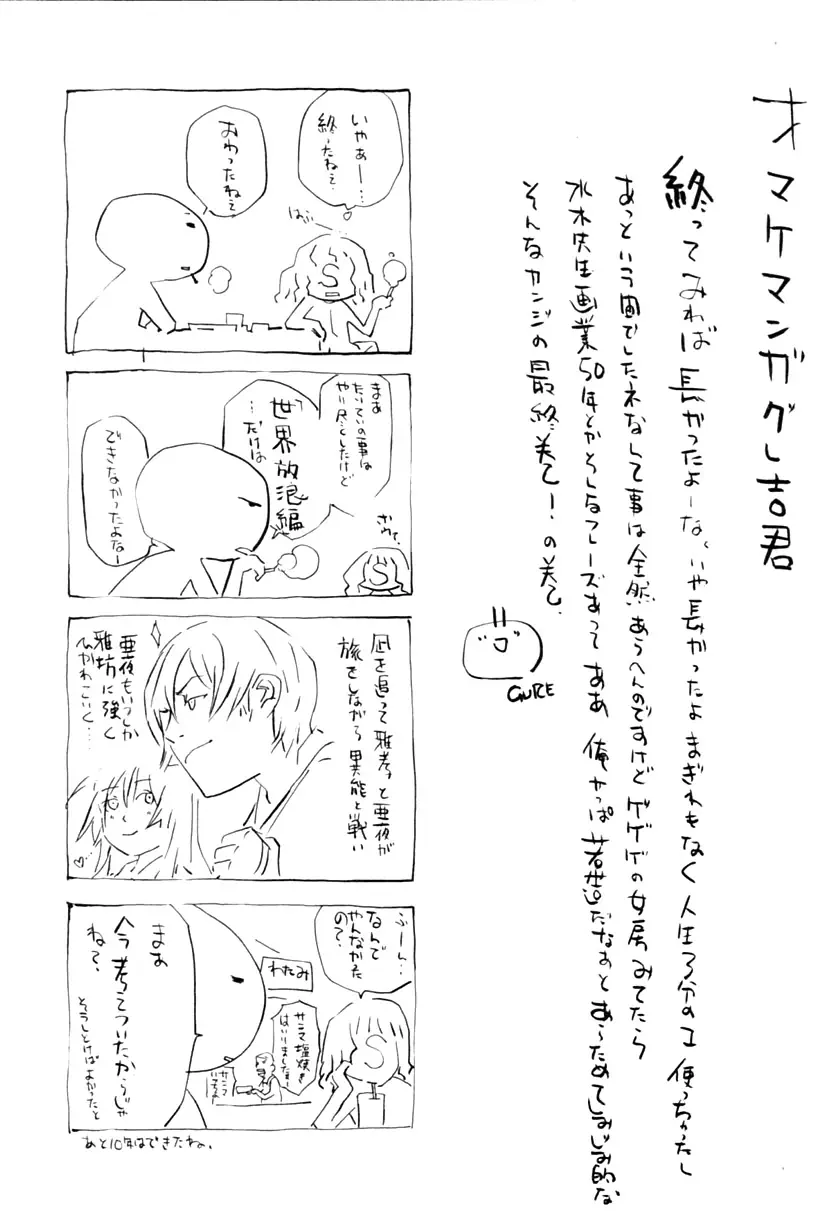 オマケマンガグレ吉君
終ってみれば長かったよーな、いや長かったよまぎれもなく人生3分の1使っちゃったし
あっという間でしたネなんて事は全然あらへんのですけどゲゲゲの女房みてたら
水木先生画業50年とかそんなフレーズあってああ俺やっぱ若造だなぁとあらためてしみじみ的な
そんなカンジの最終羌!の羌。
GURE
いやぁー…
終ったねぇ
はふー
おわったねぇ
まあ
たいていの事は
やり尽くしたけど
「世界放浪編」
…だけは
できなかったよなー
凪を追って雅孝と亜夜が
旅をしながら異能と戦い
亜夜もいつしか
雅坊に強く
ひかれていく…
ふーん…
なんで
やんなかった
の?
わたみ
サンマ塩焼き
はいりましたぁー
まあ
今考えついたからじゃ
ねぇ?
そうしとけばよかったと
あと10年はできたね。